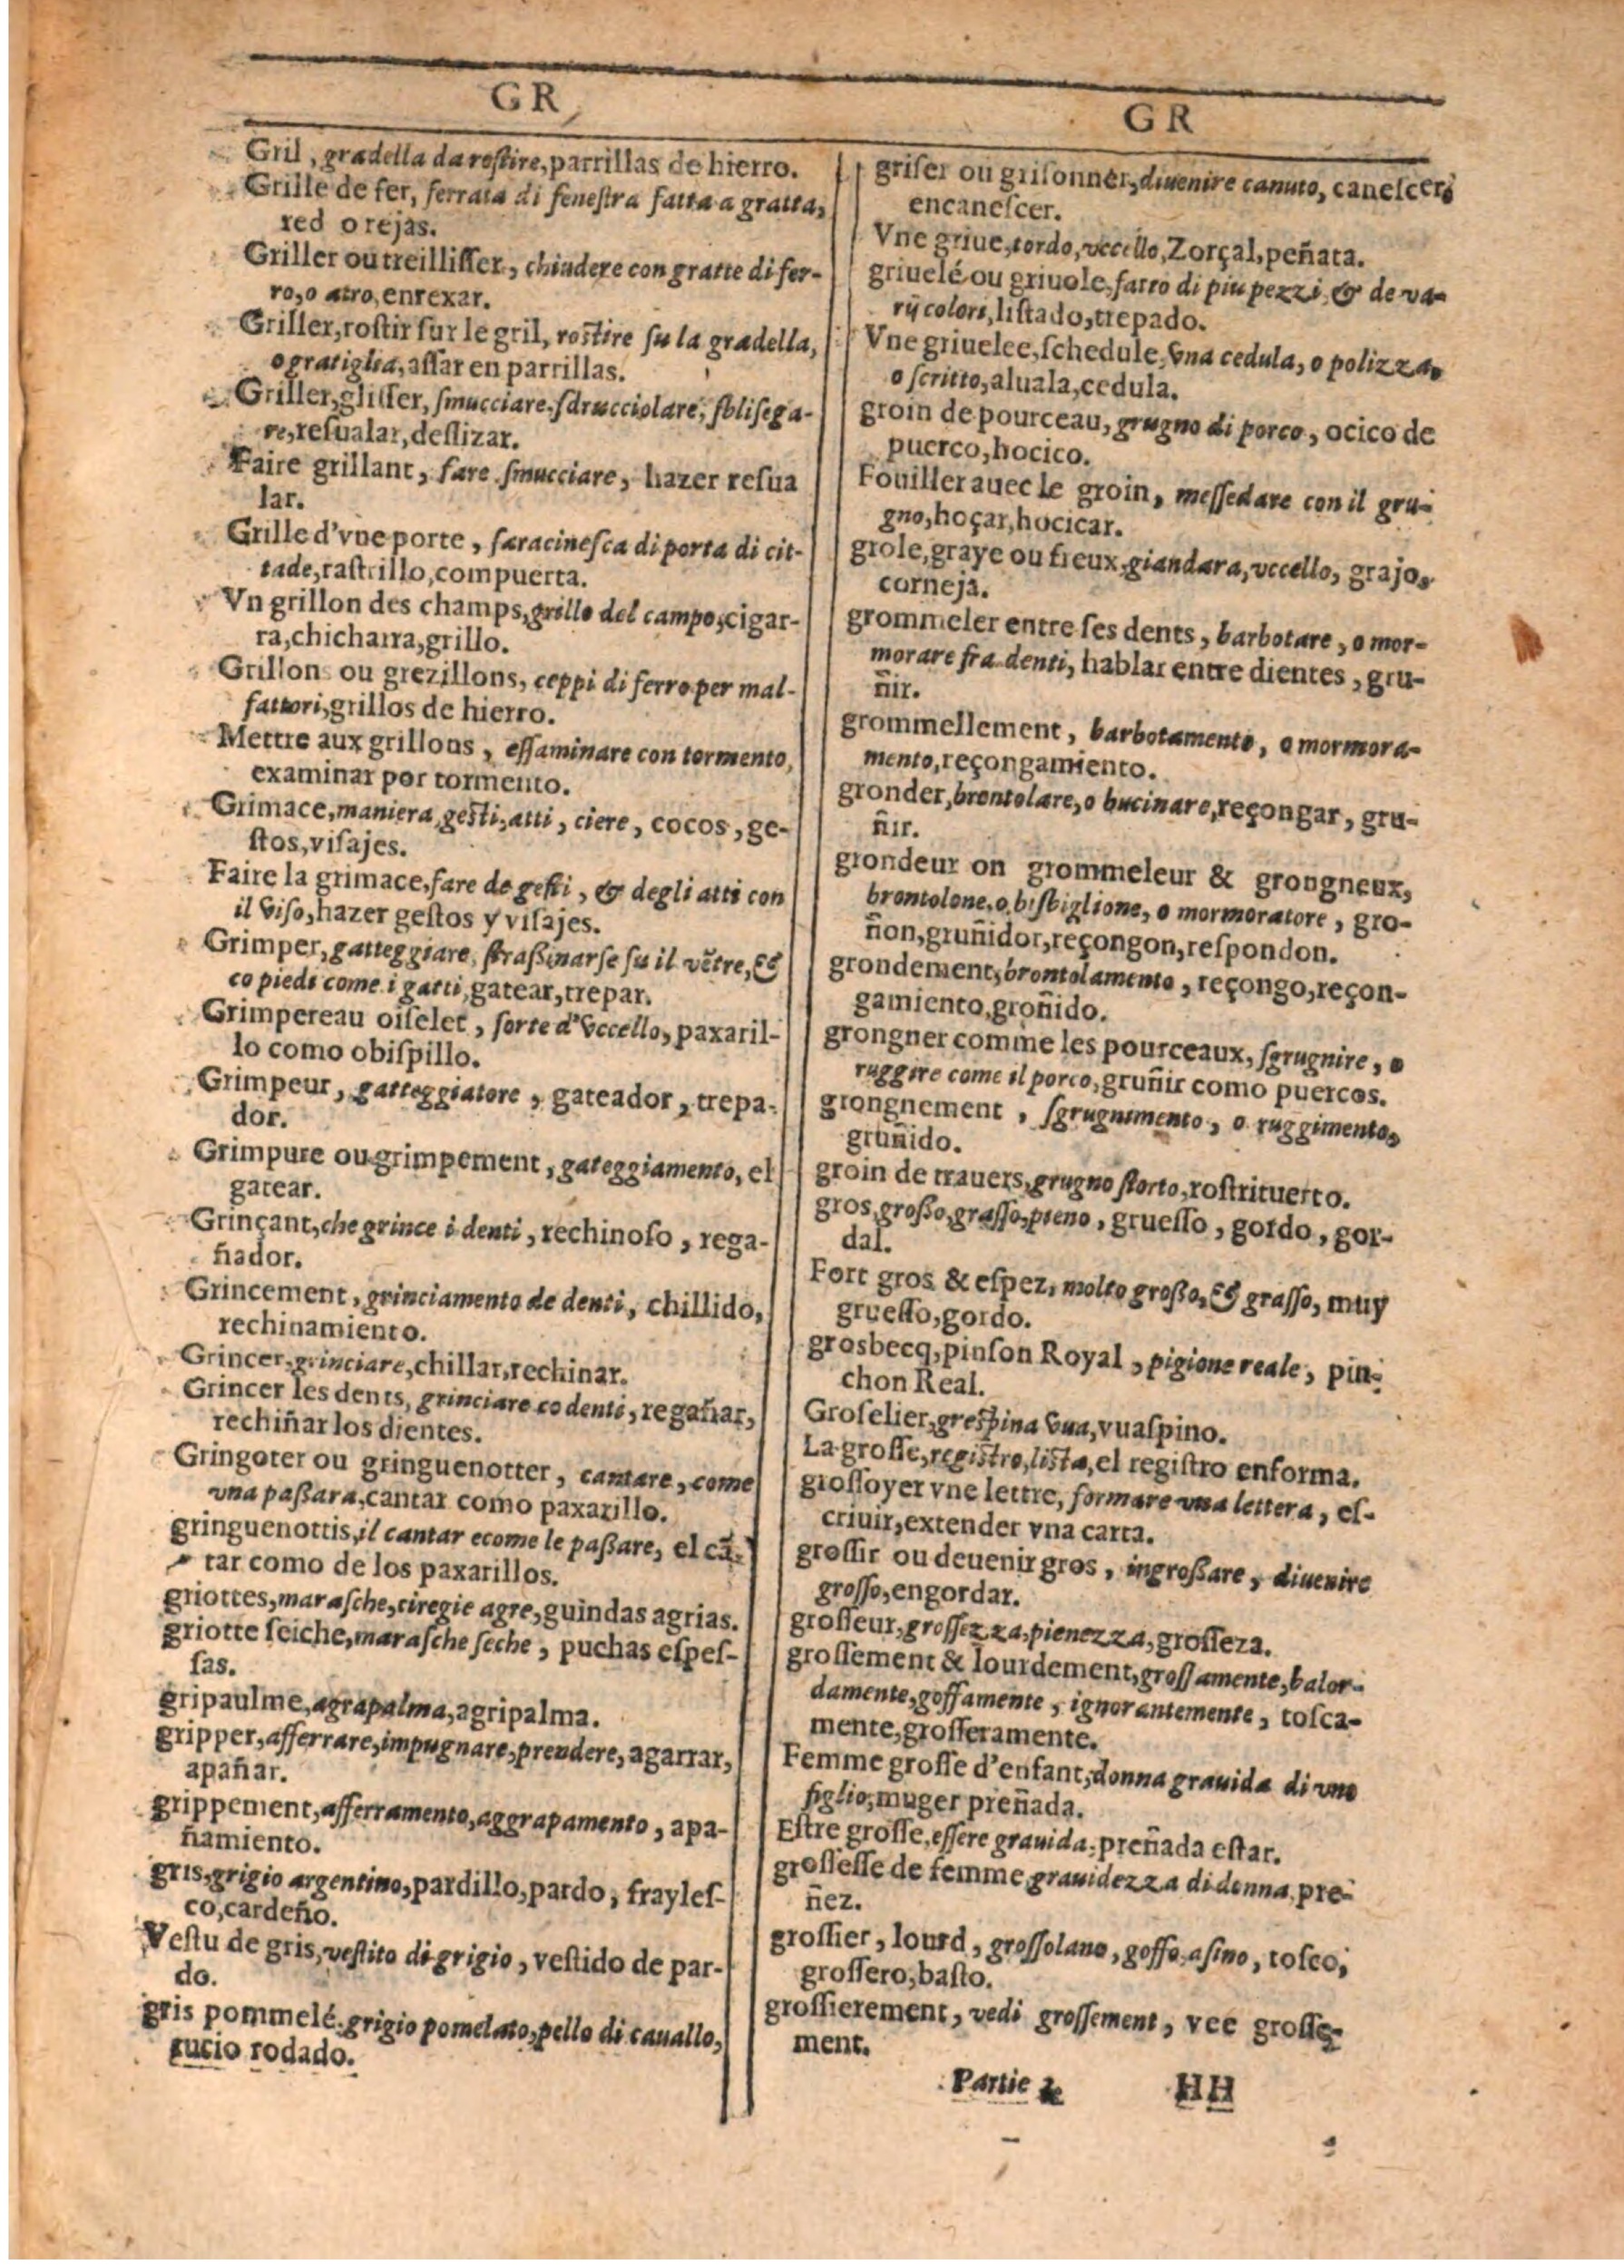 GR
Gril, gradella da rostire, parrillas de hierro.
Grille de fer, ferrata di feneſtra fatta a gratta,
red o rejas.
Griller ou treilliſſer, chiudere con gratte di fer-
ro, o atro, enrexar.
Griller, roſtir ſur le gril, rostire ſu la gradella,
o gratiglia, aſſar en parrillas.
Griller, gliſſer, ſmucciare, ſdrucciolare, ſbliſega-
re, reſualar, deſlizar.
Faire grillant, fare ſmucciare, hazer reſua
lar.
Grille d'vne porte, ſaracineſca di porta di cit-
tade, raſtrillo, compuerta.
Vn grillon des champs, grillo del campo, cigar-
ra, chicharra, grillo.
Grillons ou grezillons, ceppi di ferro per mal-
fattori, grillos de hierro.
Mettre aux grillons, eſſaminare con tormento,
examinar por tormento.
Grimace, maniera, geſti, atti, ciere, cocos, ge-
ſtos, viſajes.
Faire la grimace, fare de geſti, & degli atti con
il viſo, hazer geſtos y viſajes.
Grimper, gatteggiare, ſtraßinarſe ſu il vẽtre, &
co piedi come i gatti, gatear, trepar.
Grimpereau oiſelet, ſorte d'vccello, paxaril-
lo como obiſpillo.
Grimpeur, gatteggiatore, gateador, trepa-
dor.
Grimpure ou grimpement, gateggiamento, el
gatear.
Grinçant, che grince i denti, rechinoſo, rega-
ñador.
Grincement, grinciamento de denti, chillido,
rechinamiento.
Grincer, grinciare, chillar, rechinar.
Grincer les dents, grinciare co denti, regañar,
rechiñar los dientes.
Gringoter ou gringuenotter, cantare, come
vna paßara, cantar como paxarillo.
gringuenottis, il cantar ecome le paßare, el cã-
tar como de los paxarillos.
griottes, maraſche, ciregie agre, guindas agrias.
griotte ſeiche, maraſche ſeche, puchas eſpeſ-
ſas.
gripaulme, agrapalma, agripalma.
gripper, afferrare, impugnare, prendere, agarrar,
apañar.
grippement, afferramento, aggrapamento, apa-
ñamiento.
gris, grigio argentino, pardillo, pardo, frayleſ-
co, cardeño.
Veſtu de gris, veſtito di grigio, veſtido de par-
do.
gris pommelé, grigio pomelato, pello di cauallo,
rucio rodado.
GR
griſer ou griſonner, diuenire canuto, caneſcer,
encaneſcer.
Vne griue, tordo, vccello, Zorçal, peñata.
griuelé ou griuole, fatto di piu pezzi, & de va-
rij colori, liſtado, trepado.
Vne griuelee, ſchedule, vna cedula, o polizza,
o ſcritto, aluala, cedula.
groin de pourceau, grugno di porco, ocico de
puerco, hocico.
Fouiller auec le groin, meſſedare con il gru-
gno, hoçar, hocicar.
grole, graye ou freux, giandara, vccello, grajo,
corneja.
grommeler entre ſes dents, barbotare, o mor-
morare fra denti, hablar entre dientes, gru-
ñir.
grommellement, barbotamento, o mormora-
mento, reçongamiento.
gronder, brontolare, o bucinare, reçongar, gru-
ñir.
grondeur on grommeleur & grongneux,
brontolone, o biſbiglione, o mormoratore, gro-
ñon, gruñidor, reçongon, reſpondon.
grondement, brontolamento, reçongo, reçon-
gamiento, groñido.
grongner comme les pourceaux, ſgrugnire, o
ruggire come il porco, gruñir como puercos.
grongnement, ſgrugnimento, o ruggimento,
gruñido.
groin de trauers, grugno ſtorto, roſtrituerto.
gros, großo, graſſo, pieno, grueſſo, gordo, gor-
dal.
Fort gros & eſpez, molto großo, & graſſo, muy
grueſſo, gordo.
grosbecq, pinſon Royal, pigione reale, pin-
chon Real.
Groſelier, greſpina vua, vuaſpino.
La groſſe, regiſtro, liſta, el regiſtro enforma.
groſſoyer vne lettre, formare vna lettera, eſ-
criuir, extender vna carta.
groſſir ou deuenir gros, ingroßare, diuenire
groſſo, engordar.
groſſeur, groſſezza, pienezza, groſſeza.
groſſement & lourdement, groſſamente, balor-
damente, goffamente, ignorantemente, toſca-
mente, groſſeramente.
Femme groſſe d'enfant, donna grauida di vno
figlio, muger preñada.
Eſtre groſſe, eſſere grauida, preñada eſtar.
groſſeſſe de femme, grauidezza di donna, pre-
ñez.
groſſier, lourd, groſſolano, goffo, aſino, toſco,
groſſero, baſto.
groſſierement, vedi groſſement, vee groſſe-
ment.
Partie 2. HH